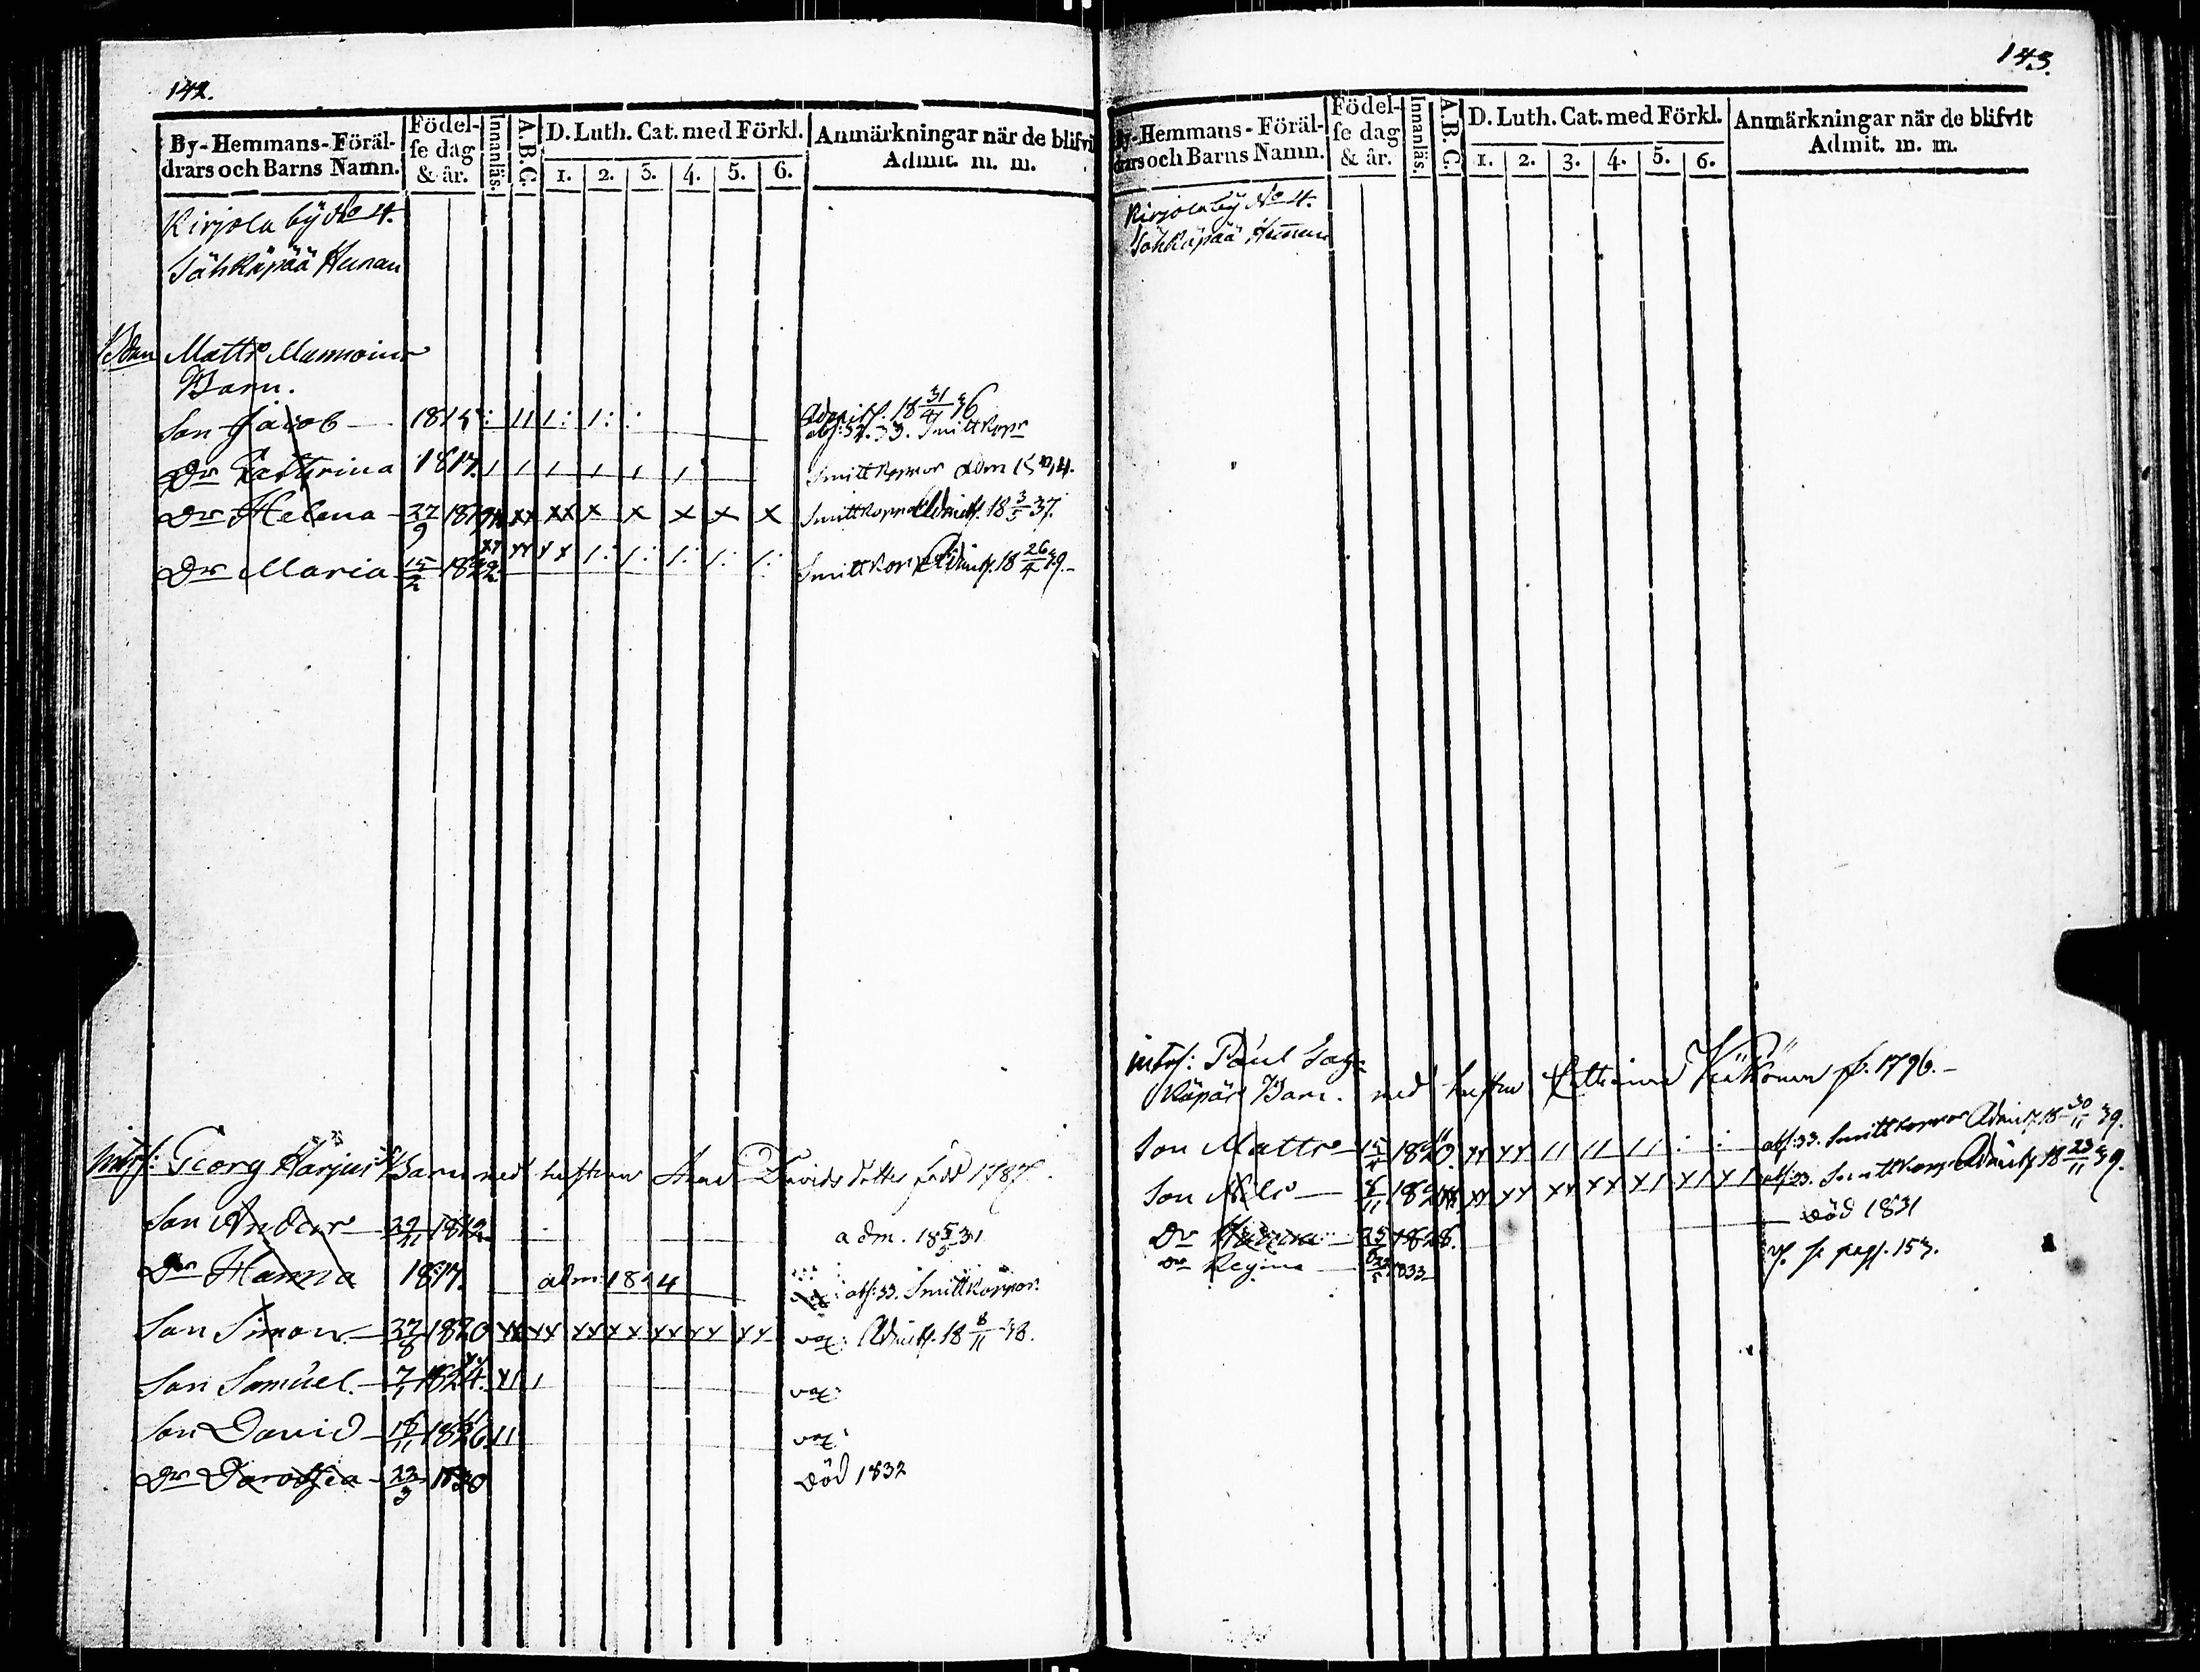 142.
By-Hemmans-Föräl-
drars och Barns Namn.
Födel-
se dag
& år.
Innanläs.
A.B.C.
D. Luth. Cat. med Förkl.
1. 2. 3. 4. 5. 6.
Anmärkningar när de blifvi
Admit. m. m.
Kirjola by No 4.
Matts
Barn.
Son Jacob 1815 Admitt. 18 31/4 36
abs: 32. 33. Smittkopr
Dr Cathrina 1817. Smittkoppor adm 1834.
Dr Helena 27/9 1819 Smittkoppor Admitt. 18 3/5 37.
Dr Maria 15/2 1822 Smittkopr Admitt. 18 26/4 39.
Georg Harjus Barn med hustrun Anna Davids dotter född 1787.
Son Anders 29/11 1812 adm. 18 5/5 31
Dr Hanna 1817. adm: 1834 abs: 33. Smittkoppor.
Son Simon 27/8 1820 xx xx xx xx xx xx xx vax: Admitt. 18 8/11 38.
Son Samuel. 7/1 1824. vax:
Son David 18/11 1826 vax:
Dr Dorothea 22/3 1830 Död 1832
143.
By-Hemmans-Föräl-
drars och Barns Namn.
Födel-
se dag
& år.
Innanläs.
A.B.C.
D. Luth. Cat. med Förkl.
1. 2. 3. 4. 5. 6.
Anmärkningar när de blifvit
Admit. m. m.
Kirjola by No 4.
Paul
Barn. med hustru f. 1796.
Son Matts 15/4 1820. abs: 33. Smittkoppor Admitt. 18 30/11 39.
Son Nils abs: 33. Smittkopr Admitt. 18 23/11 39.
Dr 25 1828. Död 1831
Dr Regina 1833 pag. 153.